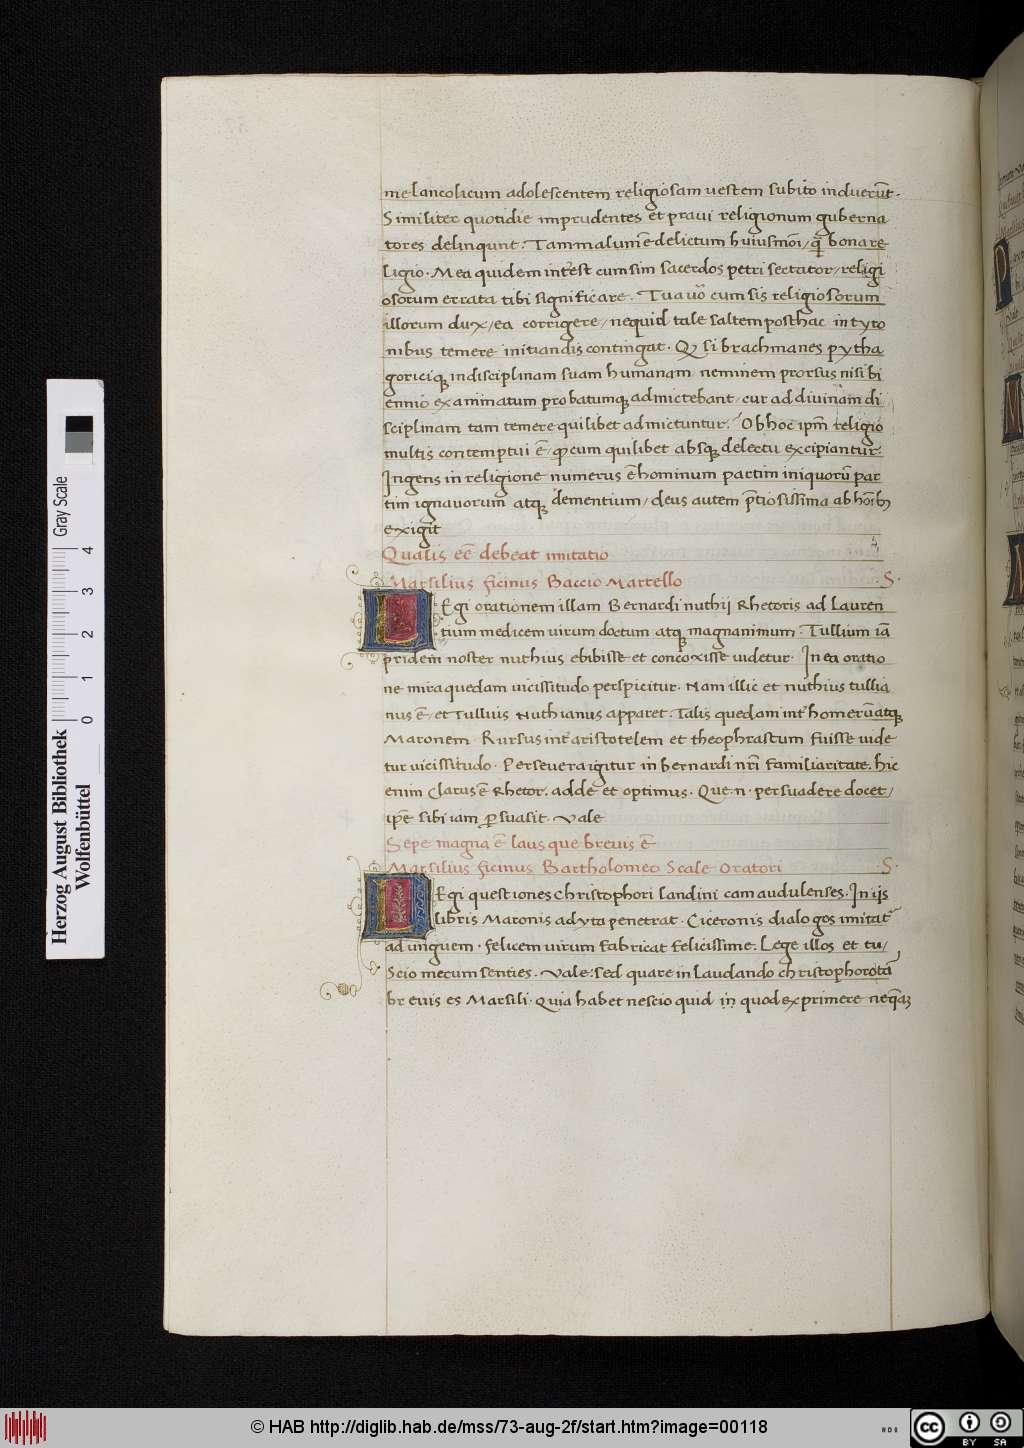 melancolicum adolescentem religiosam uestem subito induerūt.
Similiter quotidie imprudentes et praui religionum guberna
tores delinqunt. Tam malum ē delictum huiusmōi / q̄ bona re
ligio. Mea quidem intest cum sim sacerdos petri sectator / religi
osorum errata tibi significare. Tua uō cum sis religiosorum
illorum dux / ea corrigere / nequid tale saltem posthac in tyro
nibus temere initiandis contingat. Q si brachmanes pytha
goriciq in disciplinam suam humanam neminem prorsus nisi bi
ennio examinatum probatumq admictebant, cur ad diuinam di
sciplinam tam temere quilibet admictuntur. Ob hoc ipm̄ religio
multis contemptui ē / ꝙ cum quilibet absq delectu excipiantur.
Ingens in religione numerus ē hominum partim iniquorū par
tim ignauorum atq dementium / deus autem p̄tiosissima ab hōib
exigit
Qualis eē debeat imitatio
Marsilius ficinus Baccio Martello S.
LEgi orationem illam Bernardi nuthij Rhetoris ad Lauren
tium medicem uirum doctum atq magnanimum. Tullium iā
pridem noster nuthius ebibisse et concoxisse uidetur. In ea oratio
ne mira quedam uicissitudo perspicitur. Nam illic et nuthius tullia
nus ē / et Tullius Nuthianus apparet. Talis quedam int homerū atq
Maronem. Rursus int aristotelem et theophrastum fuisse uide
tur uicissitudo. Perseuera igitur in bernardi nrī familiaritate. hic
enim clarus ē Rhetor. adde et optimus. Que.n. persuadere docet /
ipse sibi iam ꝑsuasit. Vale
Sepe magna ē laus que breuis ē
Marsilius ficinus Bartholomeo Scale Oratori S.
LEgi questiones christophori landini camaudulenses. In ijs
libris Maronis adyta penetrat. Ciceronis dialogos imitat
ad unguem. felicem uirum fabricat felicissime. Lege illos et tu /
Scio mecum senties. Vale: sed quare in laudando christophoro tā
breuis es Marsili. Quia habet nescio quid in quod exprimere neq̄am
Herzog August Bibliothek
Wolfenbüttel
0 1 2 3 4
Gray Scale
© HAB http://diglib.hab.de/mss/73-aug-2f/start.htm?image=00118
cc BY SA